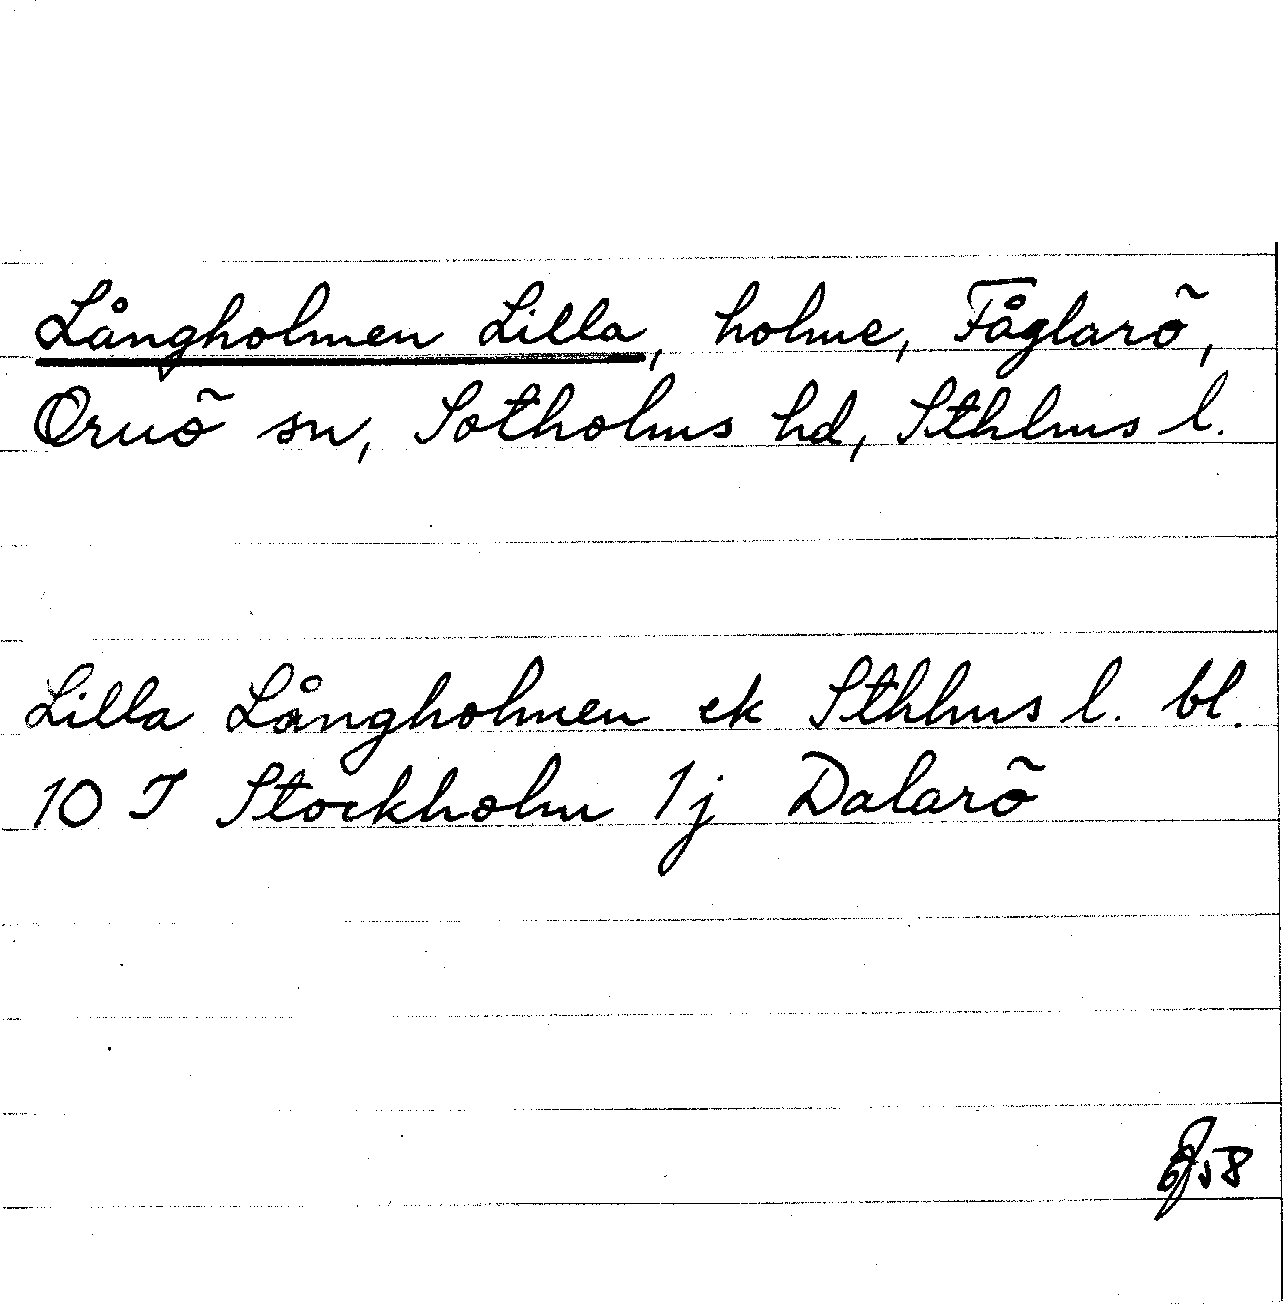 Långholmen Lilla, holme, Fåglarö,
Ornö sn, Sotholms hd, Sthlms l.
Lilla Långholmen ek Sthlms l. bl.
10 I Stockholm 1j Dalarö
58